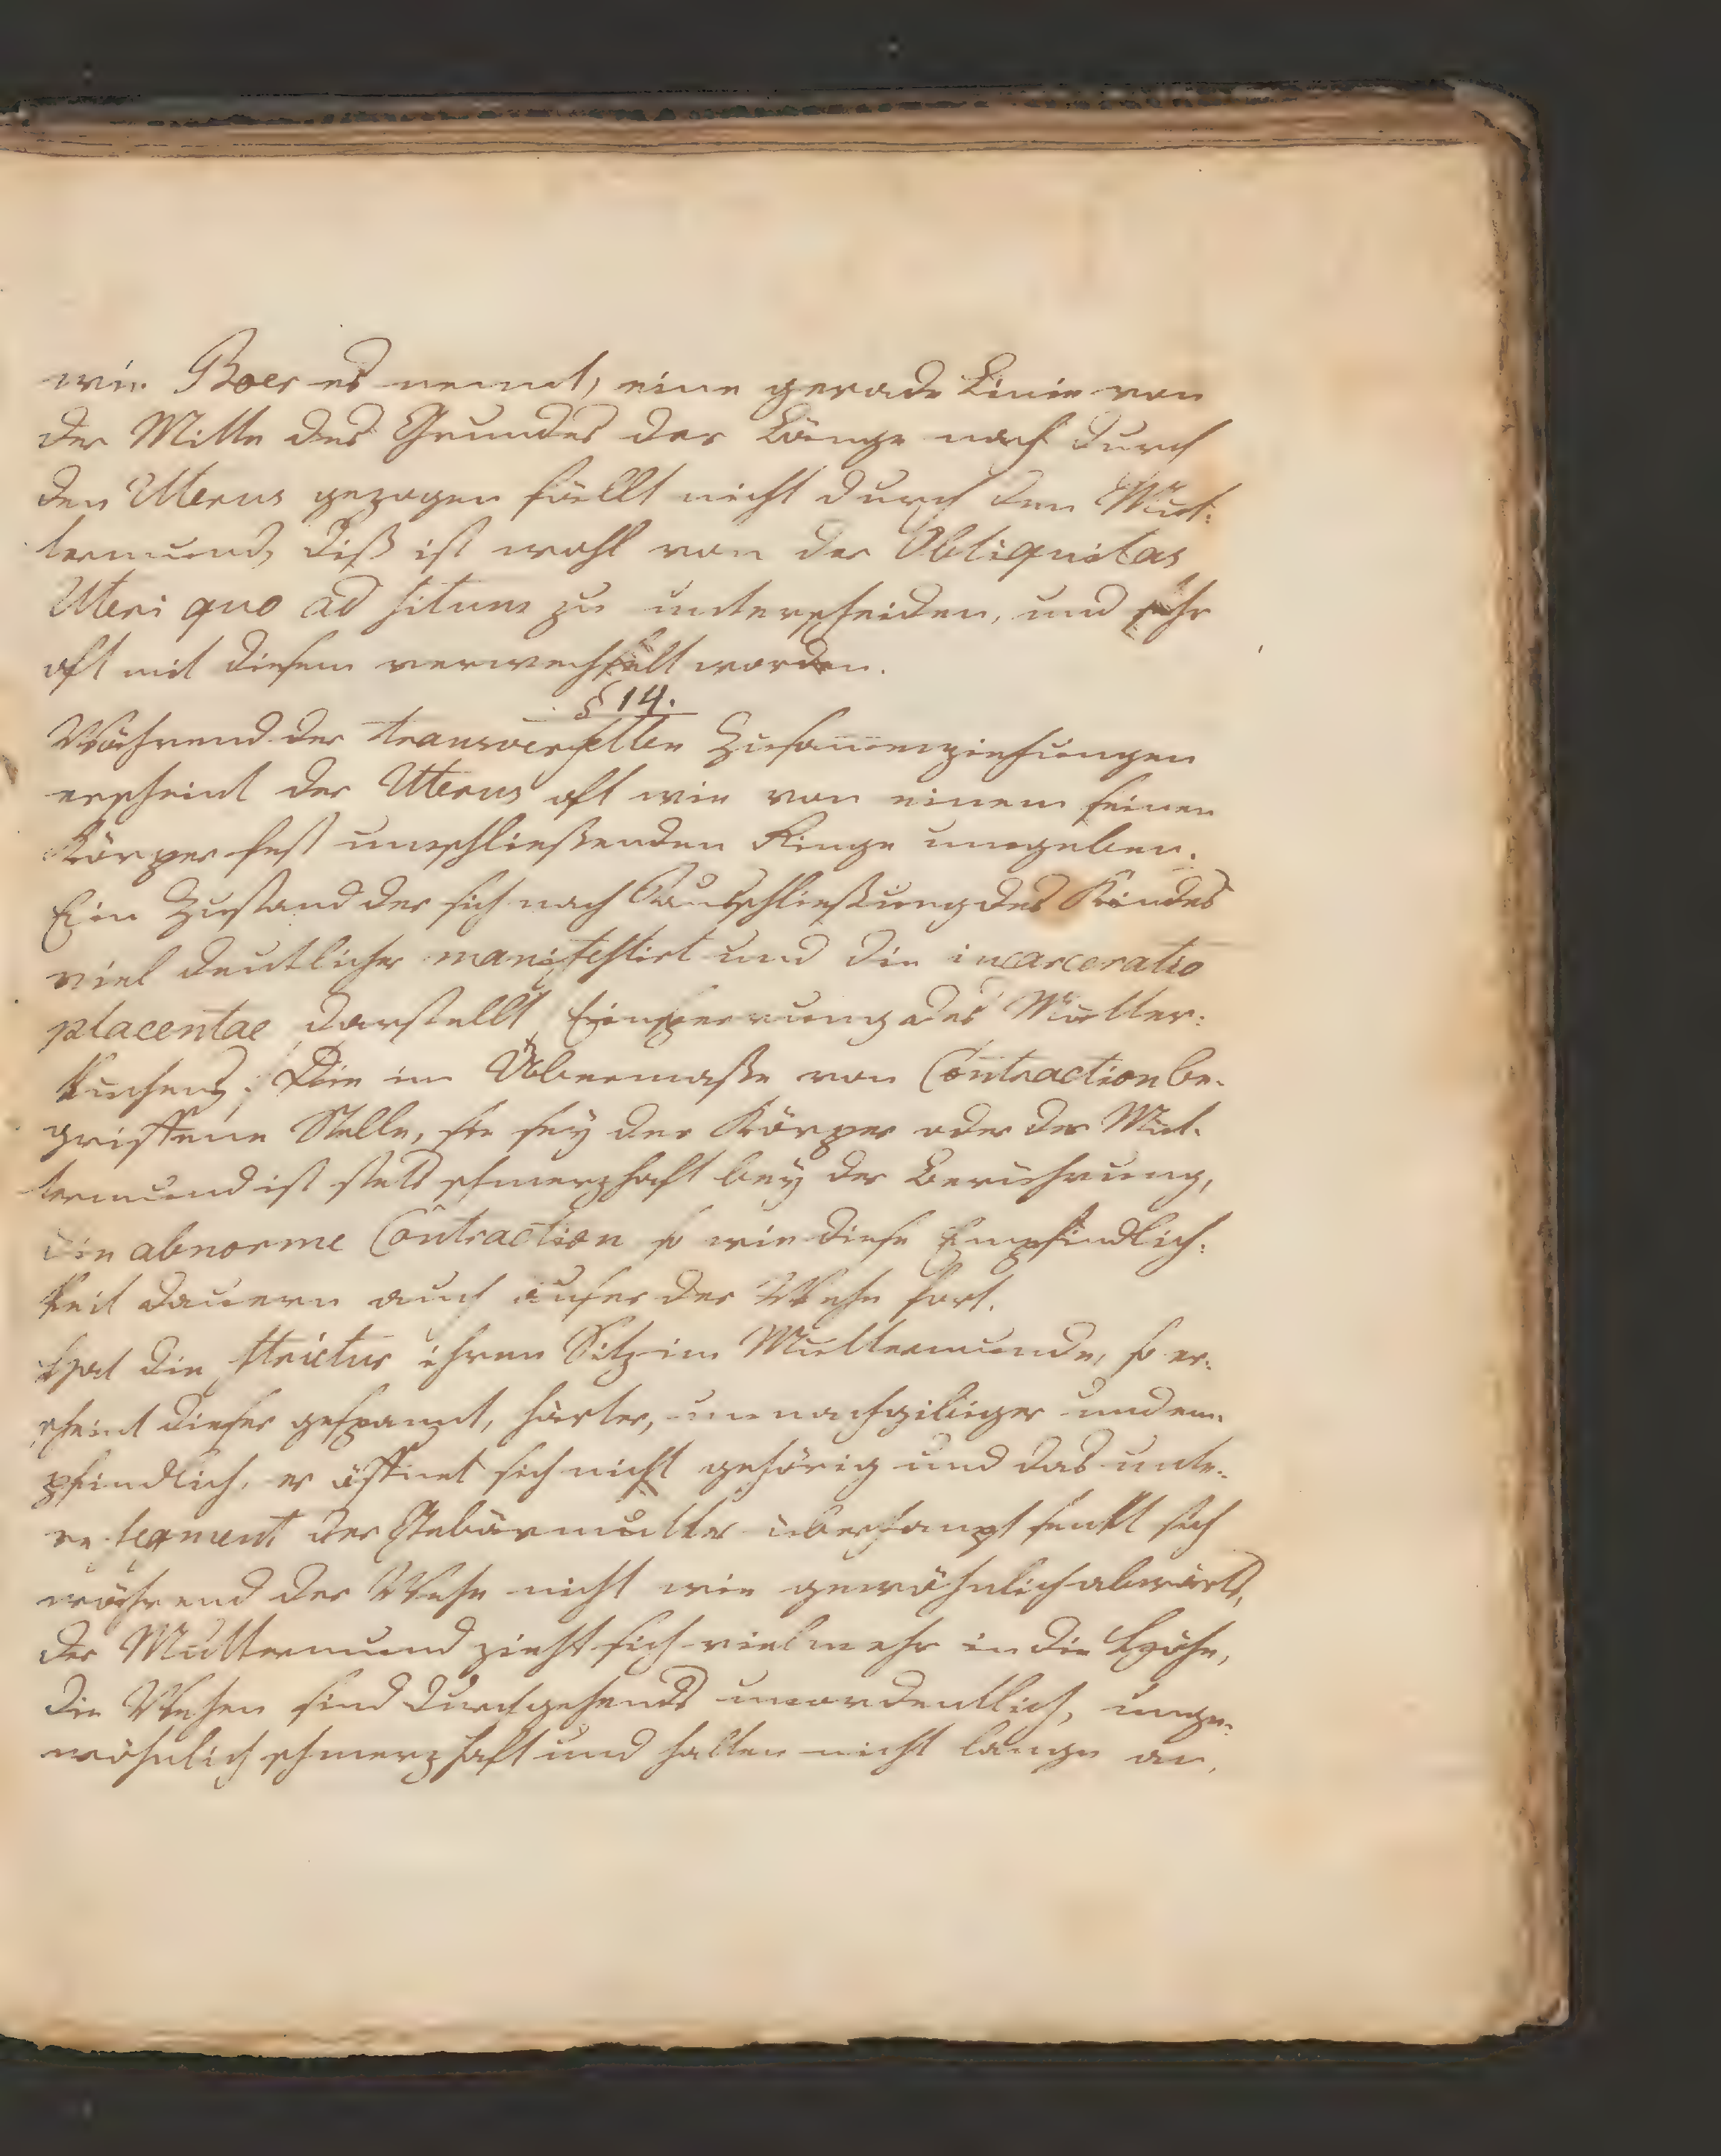 wie Boer es nennt, eine gerade Linie von
der Mitte des Grundes der Länge nach durch
den Uterus gezogen fällt nicht durch den Mut:
termund, diß ist wohl von der Obliquitas
Uteri quo ad situm zu unterscheiden, und sehr
oft mit diesem verwechselt worden.
§ 14.
Während der transversellen Zusamenziehungen
erscheint der Uterus oft wie von einem seinen
Körper fest umschließenden Ringe umgeben.
Ein Zustand der sich nach Ausschließung des Kindes
viel deutlicher manifestirt und die incarceratio
placentae darstellt, Einsperrung des Mutter:
kuchens; Die im Übermaße von Contraction be-
griffene Stelle, sie sey der Körper oder der Mut-
termund ist stets schmerzhaft bey der Berührung,
die abnorme Contraction so wie diese Empfindlich:
keit dauern auch auser der Wehe fort.
Hat die strictur ihren Sitz im Muttermunde, so er:
scheint dieser gespannt, härter, unnachgibiger und em-
pfindlich, er öffnet sich nicht gehörig und das unte-
re segment der Gebärmutter überhaupt senkt sich
während der Wehe nicht wie gewöhnlich abwärts,
der Muttermund zieht sich vielmehr in die Höhe,
die Wehen sind durchgehends unordentlich, unge-
wöhnlich schmerzhaft und halten nicht lange an,